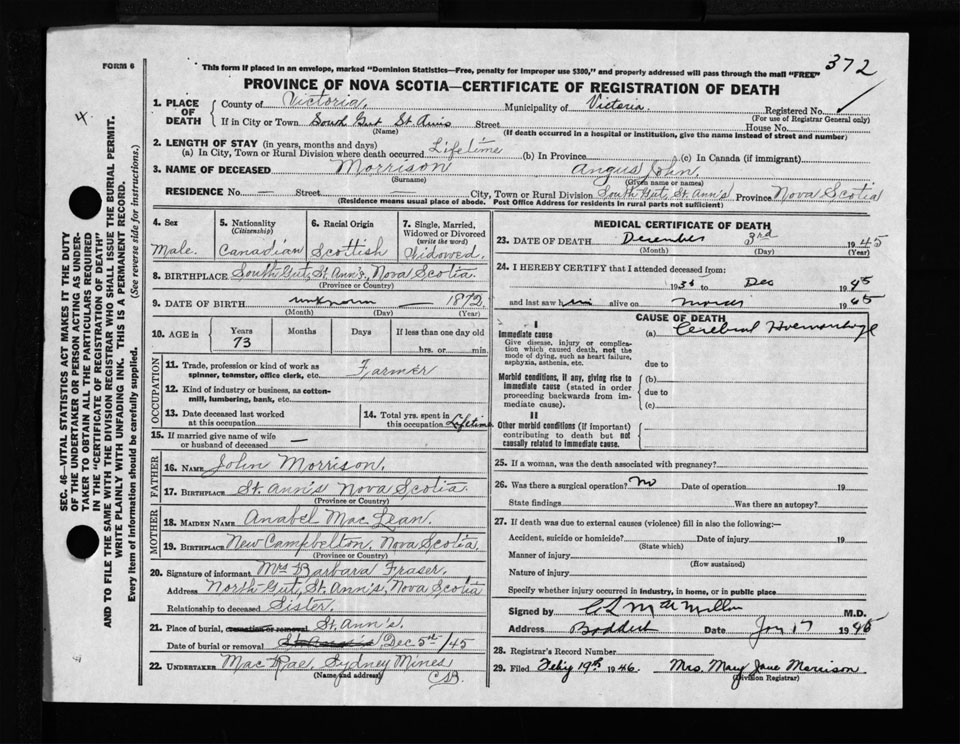 372
FORM 6
This form if placed in an envelope, marked "Dominion Statistics—Free, penalty for improper use $300," and properly addressed will pass through the mail "FREE"
PROVINCE OF NOVA SCOTIA—CERTIFICATE OF REGISTRATION OF DEATH
SEC. 46—VITAL STATISTICS ACT MAKES IT THE DUTY
OF THE UNDERTAKER OR PERSON ACTING AS UNDER-
TAKER TO OBTAIN ALL THE PARTICULARS REQUIRED
IN THE "CERTIFICATE OF REGISTRATION OF DEATH"
AND TO FILE THE SAME WITH THE DIVISION REGISTRAR WHO SHALL ISSUE THE BURIAL PERMIT.
WRITE PLAINLY WITH UNFADING INK. THIS IS A PERMANENT RECORD.
Every item of information should be carefully supplied. (See reverse side for instructions.)
1. PLACE OF DEATH County of Victoria, Municipality of Victoria. Registered No.
(For use of Registrar General only)
If in City or Town South Gut St. Anns Street House No.
(Name) (If death occurred in a hospital or institution, give the name instead of street and number)
2. LENGTH OF STAY (in years, months and days)
(a) In City, Town or Rural Division where death occurred Lifetime (b) In Province (c) In Canada (if immigrant)
3. NAME OF DECEASED Morrison Angus John.
(Surname) (Given name or names)
RESIDENCE No. — Street — City, Town or Rural Division South Gut, St. Ann's Province Nova Scotia
(Residence means usual place of abode. Post Office Address for residents in rural parts not sufficient)
4. Sex Male.
5. Nationality (Citizenship) Canadian
6. Racial Origin Scottish
7. Single, Married, Widowed or Divorced (write the word) Widowed.
8. BIRTHPLACE South Gut, St. Ann's, Nova Scotia.
(Province or Country)
9. DATE OF BIRTH unknown — 1872.
(Month) (Day) (Year)
10. AGE in Years 73 Months Days If less than one day old hrs. or min.
OCCUPATION
11. Trade, profession or kind of work as spinner, teamster, office clerk, etc. Farmer
12. Kind of industry or business, as cotton-mill, lumbering, bank, etc.
13. Date deceased last worked at this occupation
14. Total yrs. spent in this occupation Lifetime
15. If married give name of wife or husband of deceased —
FATHER
16. NAME John Morrison.
17. BIRTHPLACE St. Ann's Nova Scotia.
(Province or Country)
MOTHER
18. MAIDEN NAME Anabel MacLean.
19. BIRTHPLACE New Campbelton, Nova Scotia.
(Province or Country)
20. Signature of informant Mrs Barbara Fraser.
Address North Gut, St. Ann's, Nova Scotia
Relationship to deceased Sister.
21. Place of burial, cremation or removal St. Ann's.
Date of burial or removal St. Ann's Dec 5th/45
22. UNDERTAKER MacRae, Sydney Mines
(Name and address)
MEDICAL CERTIFICATE OF DEATH
23. DATE OF DEATH December 3rd 1945
(Month) (Day) (Year)
24. I HEREBY CERTIFY that I attended deceased from:
193 to Dec 1945
and last saw him alive on 1945
CAUSE OF DEATH
I
Immediate cause (a) Cerebral Hoemorrhage
Give disease, injury or complica-
tion which caused death, not the
mode of dying, such as heart failure,
asphyxia, asthenia, etc. due to
Morbid conditions, if any, giving rise to (b)
immediate cause (stated in order due to
proceeding backwards from im-
mediate cause). (c)
II
Other morbid conditions (if important)
contributing to death but not
causally related to immediate cause.
25. If a woman, was the death associated with pregnancy?
26. Was there a surgical operation? No Date of operation 19
State findings Was there an autopsy?
27. If death was due to external causes (violence) fill in also the following:—
Accident, suicide or homicide? Date of injury 19
(State which)
Manner of injury
(How sustained)
Nature of injury
Specify whether injury occurred in industry, in home, or in public place
Signed by C L MacMillan M.D.
Address Baddeck Date Jan 17 1945
28. Registrar's Record Number
29. Filed Feb'y 19th 1946. Mrs. Mary Jane Morrison
(Division Registrar)